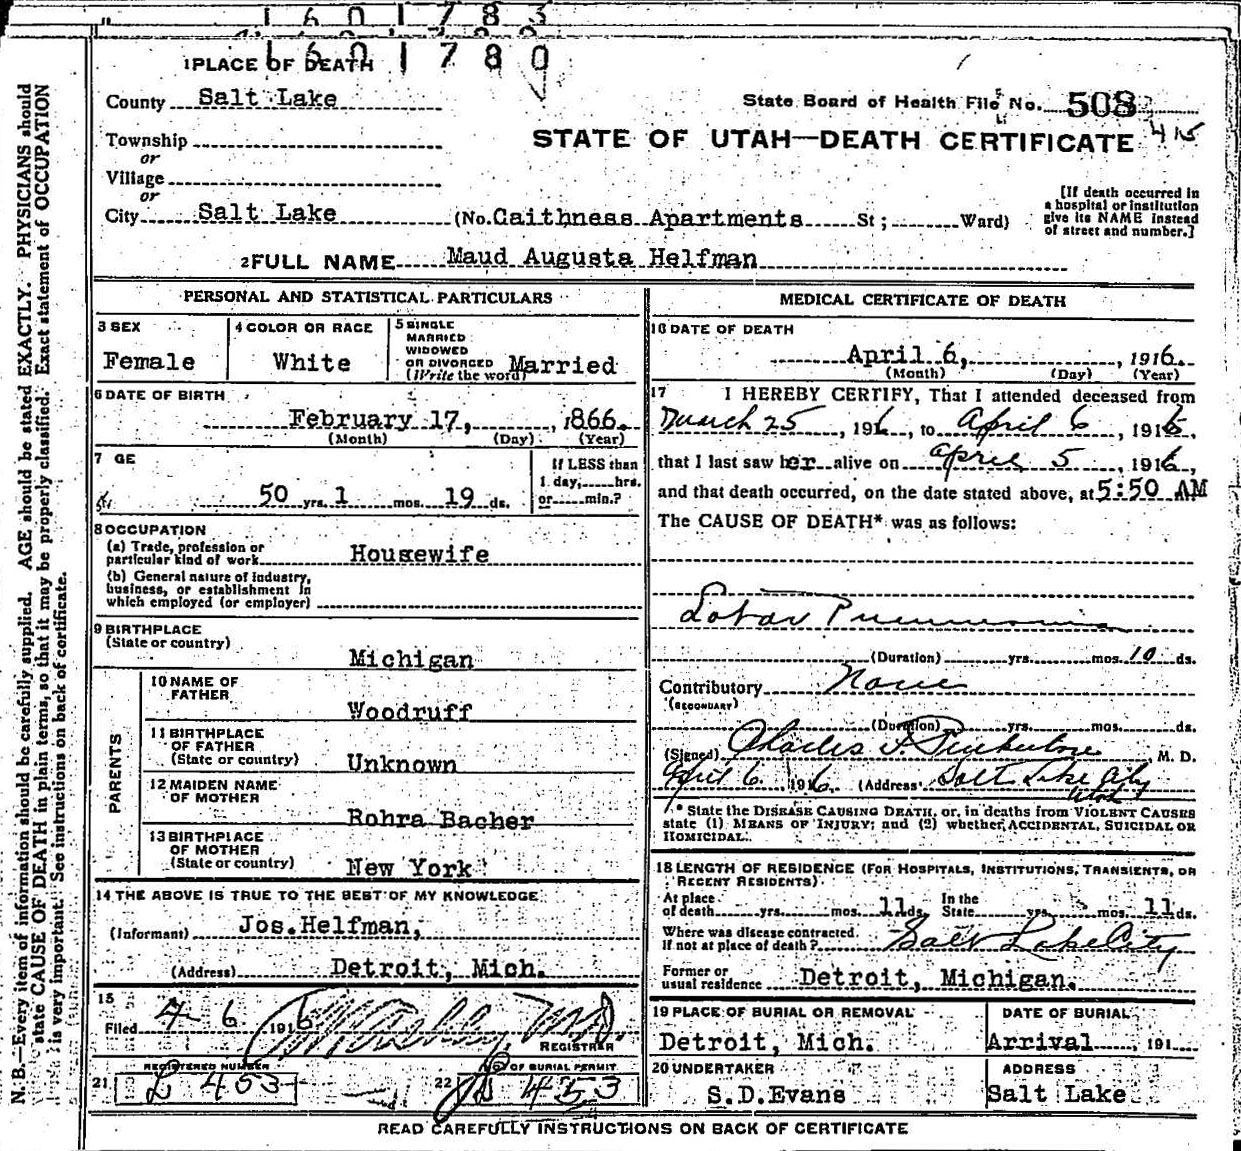 1601783
1601780
1 PLACE OF DEATH
County Salt Lake
State Board of Health File No. 508
415
Township
or
Village
or
STATE OF UTAH—DEATH CERTIFICATE
City Salt Lake (No. Caithness Apartments St; Ward)
[If death occurred in
a hospital or institution
give its NAME instead
of street and number.]
2 FULL NAME Maud Augusta Helfman
PERSONAL AND STATISTICAL PARTICULARS
3 SEX
Female
4 COLOR OR RACE
White
5 SINGLE
MARRIED
WIDOWED
OR DIVORCED
(Write the word) Married
6 DATE OF BIRTH
February 17, 1866.
(Month) (Day) (Year)
7 GE
50 yrs. 1 mos. 19 ds.
If LESS than
1 day, hrs.
or min.?
8 OCCUPATION
(a) Trade, profession or
particular kind of work Housewife
(b) General nature of industry,
business, or establishment in
which employed (or employer)
9 BIRTHPLACE
(State or country)
Michigan
PARENTS
10 NAME OF
FATHER
Woodruff
11 BIRTHPLACE
OF FATHER
(State or country) Unknown
12 MAIDEN NAME
OF MOTHER
Rohra Bacher
13 BIRTHPLACE
OF MOTHER
(State or country) New York
14 THE ABOVE IS TRUE TO THE BEST OF MY KNOWLEDGE
(Informant) Jos. Helfman,
(Address) Detroit, Mich.
15
Filed 4-6 1916
M.D.
REGISTRAR
REGISTERED NUMBER
21 L 453
NO OF BURIAL PERMIT
22 453
MEDICAL CERTIFICATE OF DEATH
16 DATE OF DEATH
April 6, 1916.
(Month) (Day) (Year)
17 I HEREBY CERTIFY, That I attended deceased from
March 25, 1916, to April 6, 1916,
that I last saw her alive on April 5, 1916,
and that death occurred, on the date stated above, at 5:50 AM
The CAUSE OF DEATH* was as follows:
Lobar Pneumonia
(Duration) yrs. mos. 10 ds.
Contributory None
(SECONDARY)
(Duration) yrs. mos. ds.
(Signed) Charles F. Pinkerton, M. D.
April 6, 1916. (Address) Salt Lake City
Utah
* State the DISEASE CAUSING DEATH, or, in deaths from VIOLENT CAUSES
state (1) MEANS OF INJURY; and (2) whether ACCIDENTAL, SUICIDAL OR
HOMICIDAL.
18 LENGTH OF RESIDENCE (FOR HOSPITALS, INSTITUTIONS, TRANSIENTS, OR
RECENT RESIDENTS)
At place
of death yrs. mos. 11 ds.
In the
State yrs. mos. 11 ds.
Where was disease contracted.
If not at place of death? Salt Lake City
Former or
usual residence Detroit, Michigan.
19 PLACE OF BURIAL OR REMOVAL
Detroit, Mich.
DATE OF BURIAL
Arrival, 191
20 UNDERTAKER
S.D.Evans
ADDRESS
Salt Lake
READ CAREFULLY INSTRUCTIONS ON BACK OF CERTIFICATE
N. B.—Every item of information should be carefully supplied. AGE should be stated EXACTLY. PHYSICIANS should
state CAUSE OF DEATH in plain terms, so that it may be properly classified. Exact statement of OCCUPATION
is very important. See instructions on back of certificate.